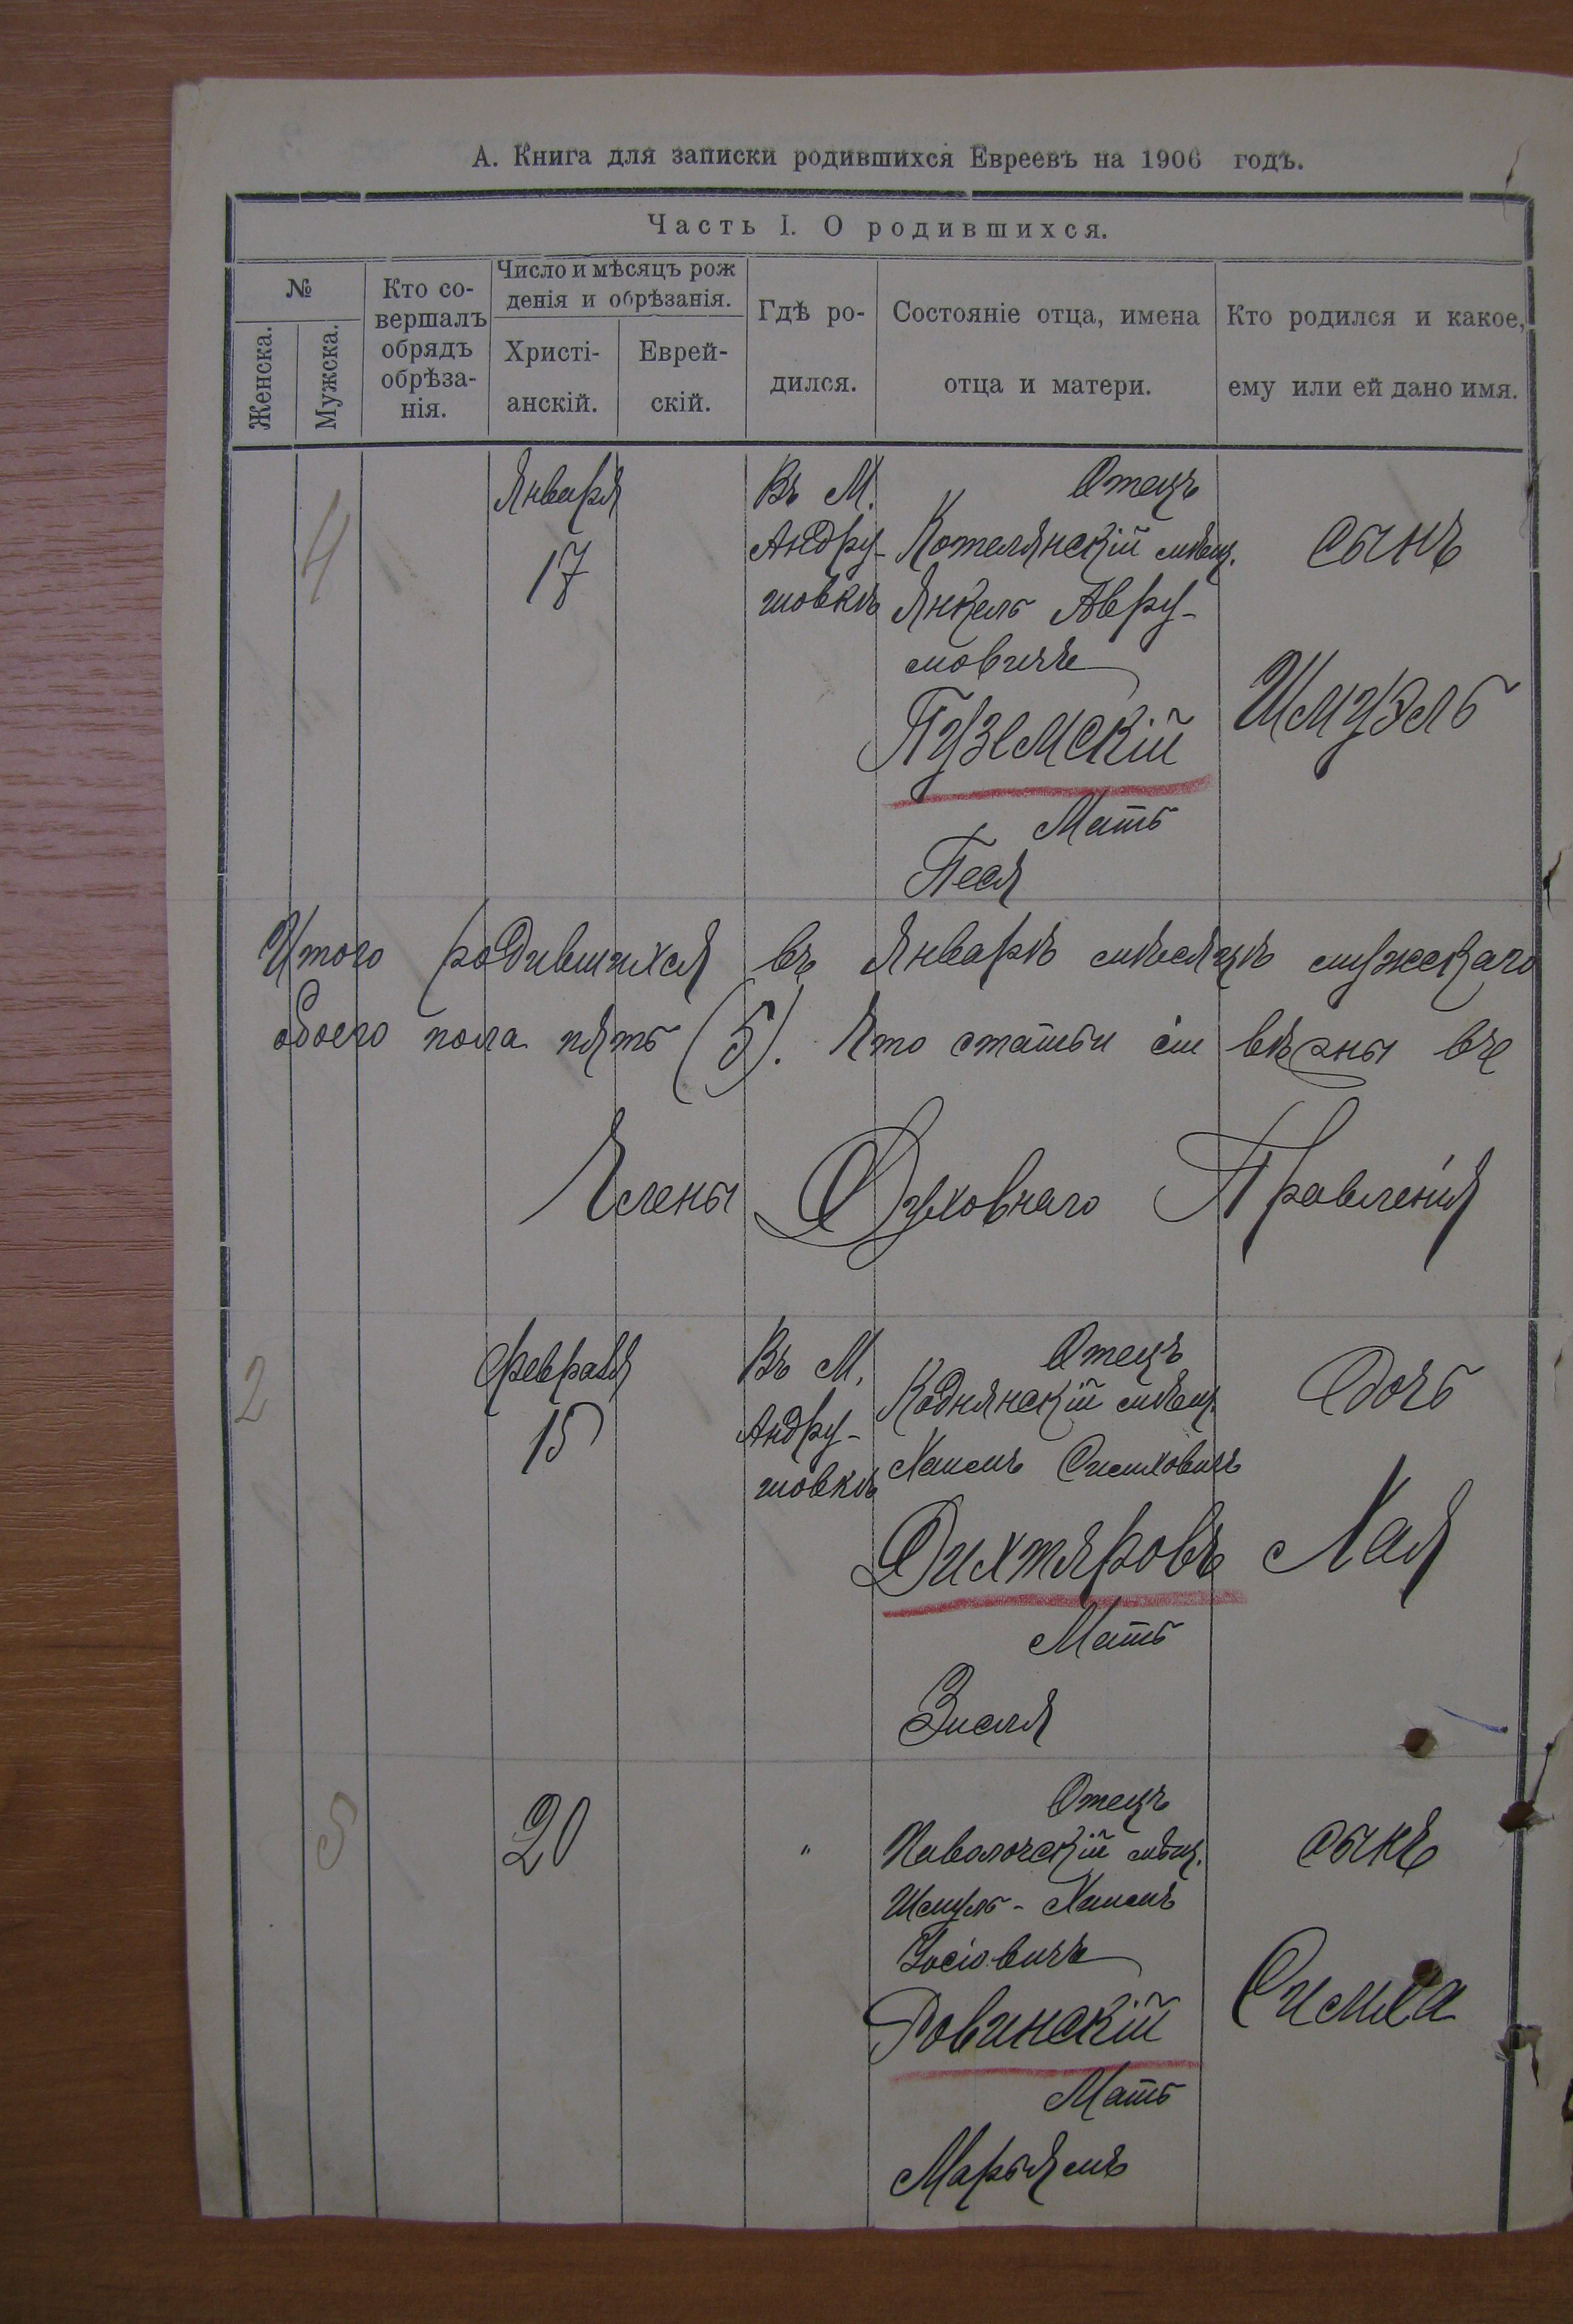 А. Книга для записки родившихся Евреевъ на 1906 годъ.
Часть I. О родившихся.
№
Женска.
Мужска.
Кто со-
вершалъ
обрядъ
обрѣза-
нія.
Число и мѣсяцъ рож
денія и обрѣзанія.
Христі-
анскій.
Еврей-
скій.
Гдѣ ро-
дился.
Состояніе отца, имена
отца и матери.
Кто родился и какое,
ему или ей дано имя.
4
Января
17
Въ М.
Андру-
шовкѣ
Отецъ
Котелянскій мѣщ.
Янкель Авру-
мовичъ
Пуземскій
Мать
Песя
сынъ
Шмуэль
Итого родившихся въ Январѣ мѣсяцѣ мужескаго
обоего пола пять (5). Что статьи сіи вѣрны въ
Члены Духовнаго Правленія
2
Февраля
15
Въ М.
Андру-
шовкѣ
Отецъ
Коднянскій мѣщ.
Хаимъ Симховичъ
Дихтяровъ
Мать
Зисля
дочь
Хая
5
20
"
Отецъ
Паволочскій мѣщ.
Шмуль-Хаимъ
Іосіовичъ
Ровинскій
Мать
Марьямъ
сынъ
Симха